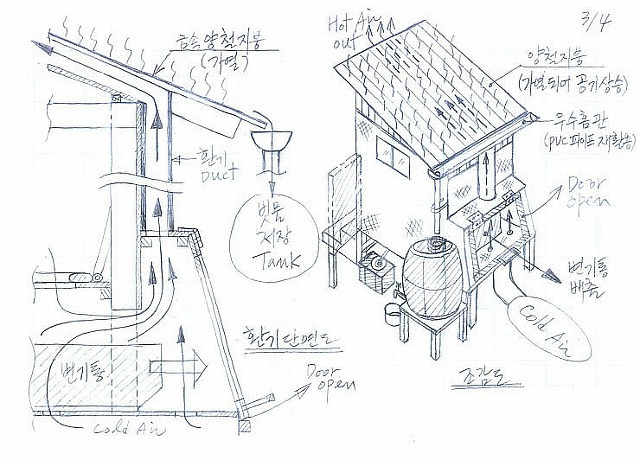 금속 양철지붕
(가열)
환기
Duct
빗물
저장
Tank
변기통
환기단면도
Door
open
Cold Air
3/4
Hot Air
out
양철지붕
(가열되어 공기상승)
우수홈관
(PVC 파이프 재활용)
Door
open
변기통
배출
Cold Air
조감도